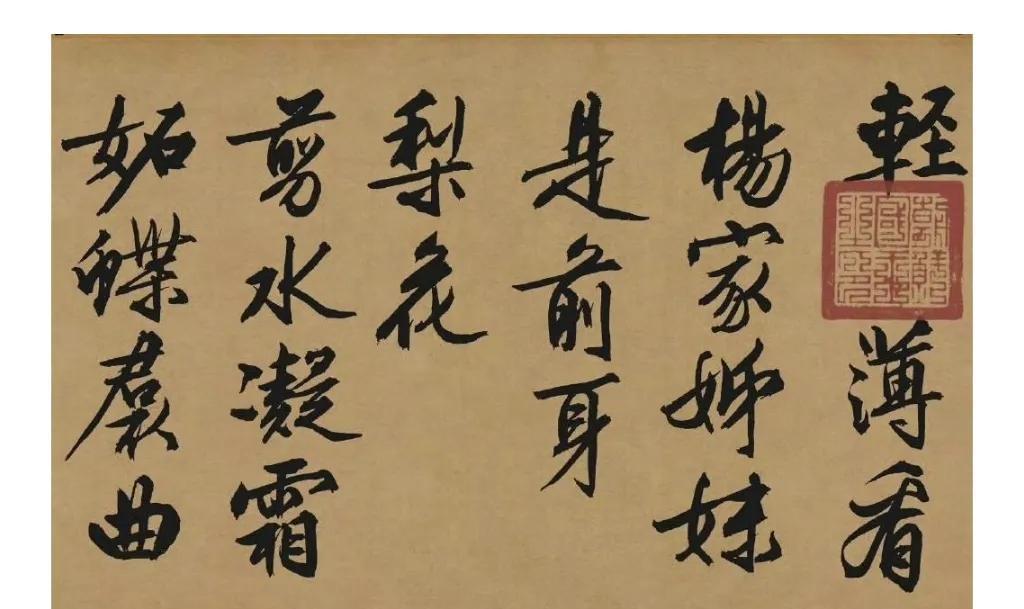 軽薄看
楊家姊妹
是前身
梨花
剪水凝霜
妬蝶裠曲